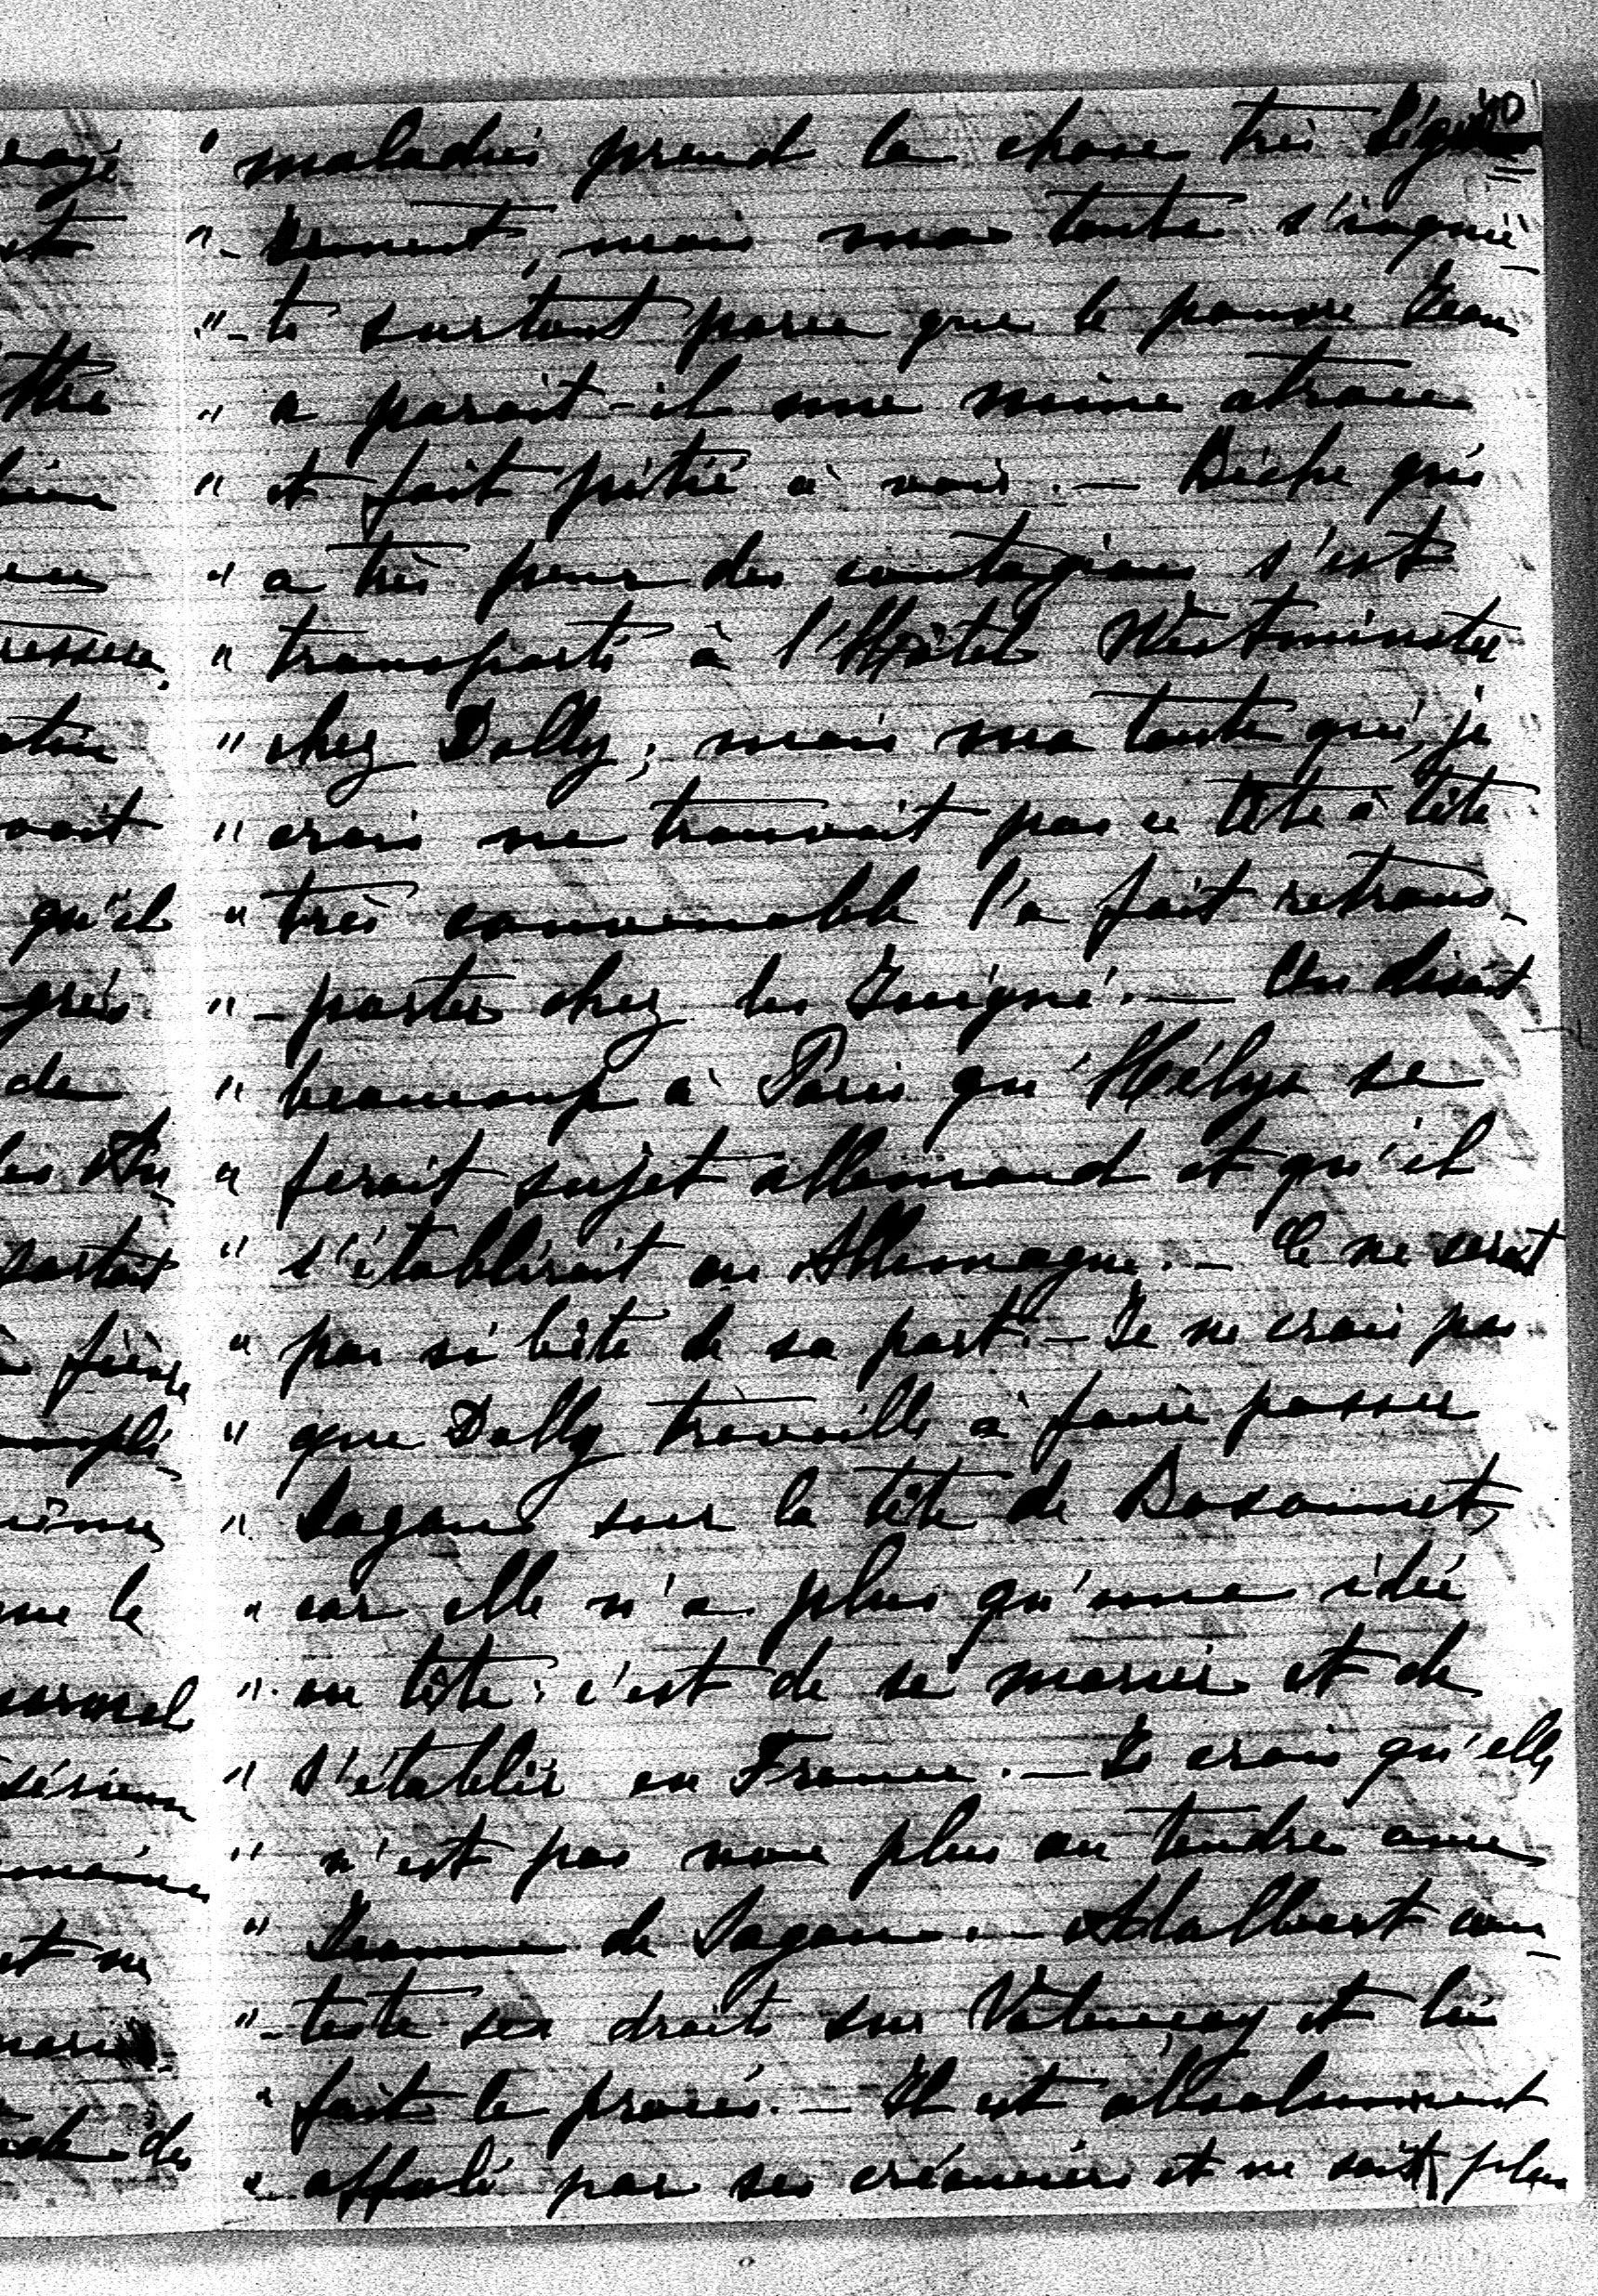 10
" maladies prend la chose très légè-
" -rement, mais ma tante s'inquiè-
" -te surtout parce que le pauvre Jean
" a parait-il une mine atroce
" et fait pitié à voir. — Biche qui
" a très peur des contagions s'est
" transporté à l'Hôtel Westminster
" chez Dolly; mais ma tante qui, je
" crois ne trouvait pas ce tête à tête
" très convenable l'a fait retrans-
" -porter chez les Juigné. — On disait
" beaucoup à Paris qu'Hélye se
" ferait sujet allemand et qu'il
" s'établirait en Allemagne. — Ce ne serait
" pas si bête de sa part. — Je ne crois pas
" que Dolly travaille à faire passer
" Sagan sur la tête de Bosonnet,
" car elle n'a plus qu'une idée
" en tête: c'est de se marier et de
" s'établir en France. — Je crois qu'elle
" n'est pas non plus au tendre avec
" Jeanne de Sagan. — Adalbert con-
" -teste ses droits sur Valençay et lui
" fait le procès. — Il est absolument
" affolé par ses créanciers et ne sait plus